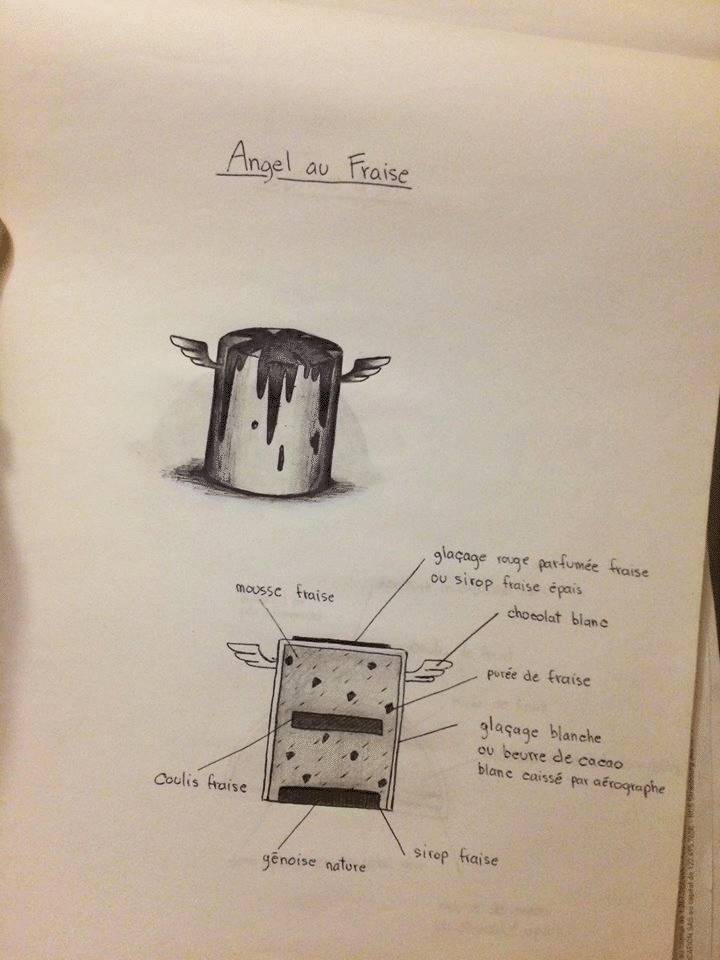 Angel au Fraise
glaçage rouge parfumée fraise
ou sirop fraise épais
mousse fraise
chocolat blanc
purée de fraise
glaçage blanche
ou beurre de cacao
blanc caissé par aérographe
Coulis fraise
génoise nature
sirop fraise